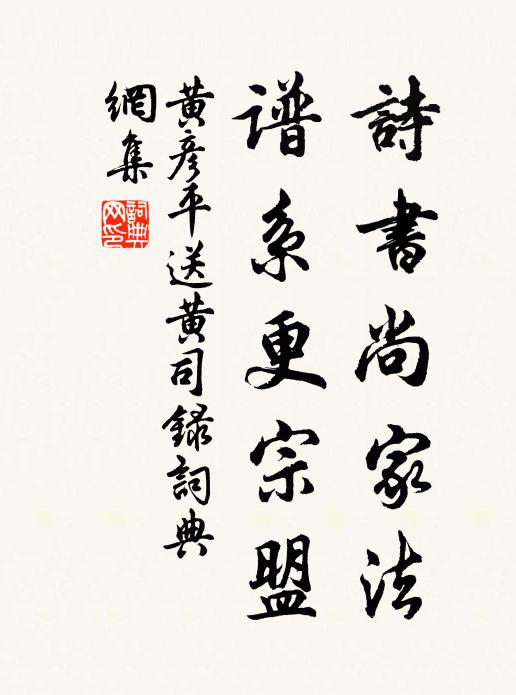 詩書尚家法
譜系更宗盟
黄彦平送黄司録詞典
網集
詞典
网印